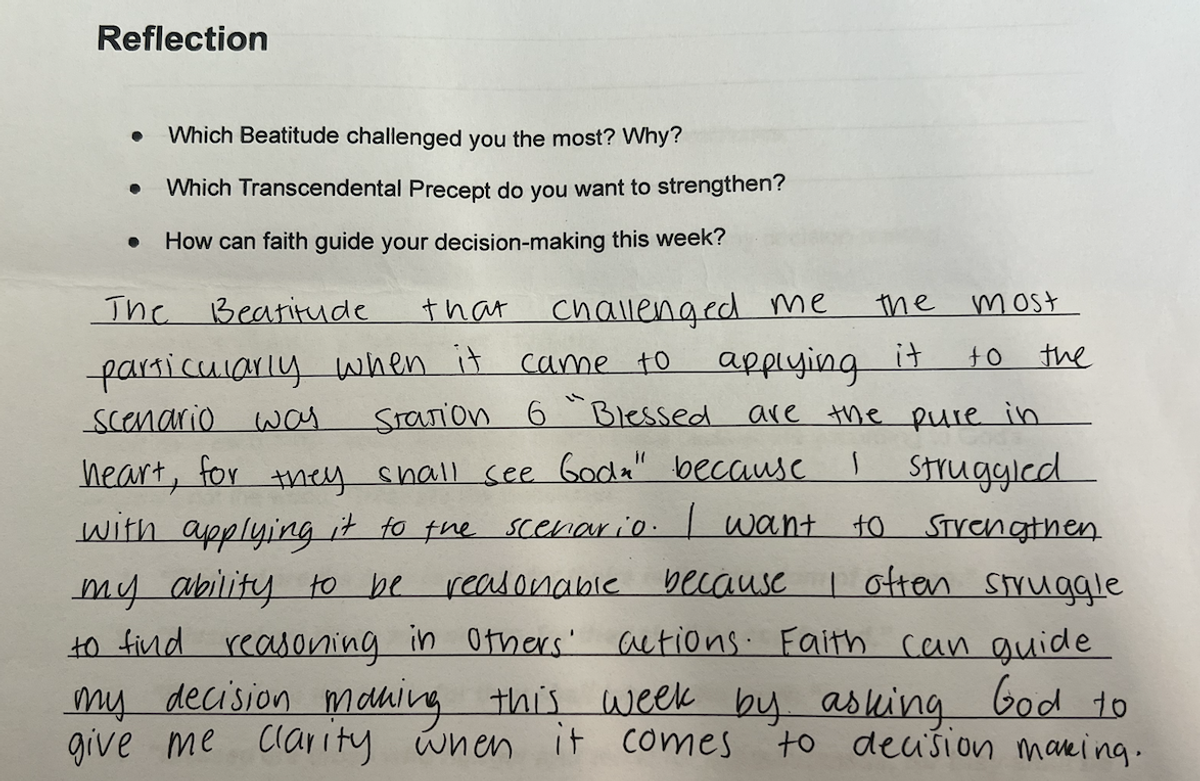 Reflection
• Which Beatitude challenged you the most? Why?
• Which Transcendental Precept do you want to strengthen?
• How can faith guide your decision-making this week?
The Beatitude that challenged me the most
particularly when it came to applying it to the
scenario was Station 6 "Blessed are the pure in
heart, for they shall see God." because I struggled
with applying it to the scenario. I want to strengthen
my ability to be reasonable because I often struggle
to find reasoning in others' actions. Faith can guide
my decision making this week by asking God to
give me clarity when it comes to decision making.